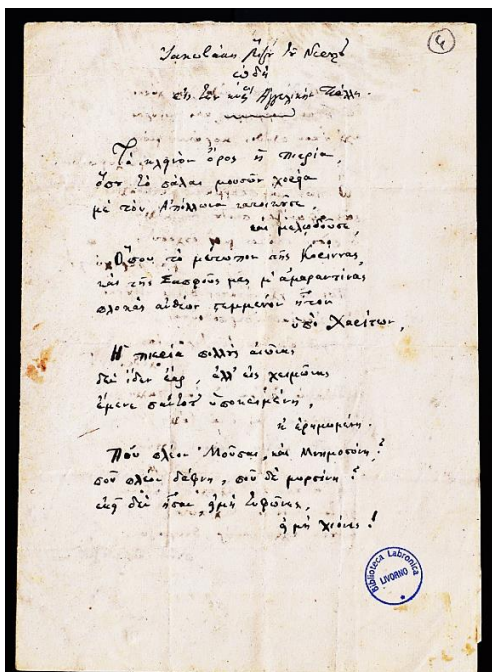 4
Ἰακωβάκη Ῥίζου τοῦ Νερουλοῦ
ᾠδὴ
εἰς τὴν Ἀγγελικὴν Πάλλη.
Τὸ κλεινὸν ὄρος ἡ Πιερία,
ὅπου τὸ πάλαι μουσῶν χορεία
μὲ τὸν Ἀπόλλωνα κατοικοῦσε,
καὶ μελῳδοῦσε,
Ὅπου τὸ μέτωπον τῆς Κορίννας,
καὶ τῆς Σαπφοῦς μας μ' ἀμαραντίνας
πλοκὰς ἀνθέων στεμμένον ἦτον
ὑπὸ Χαρίτων,
Ἡ Πιερία πολλοὺς αἰῶνας
δὲν εἶδεν ἔαρ, ἀλλ' εἰς χειμῶνας
ἔμενε πάντοτ' ὑποκειμένη,
κ' ἐρημωμένη.
Ποῦ πλέον Μοῦσαι, καὶ Μνημοσύνη;
ποῦ πλέον δάφνη, ποῦ δὲ μυρσίνη;
ἐκεῖ δὲν ἦσαν,
χιόνες!
Biblioteca Labronica
LIVORNO